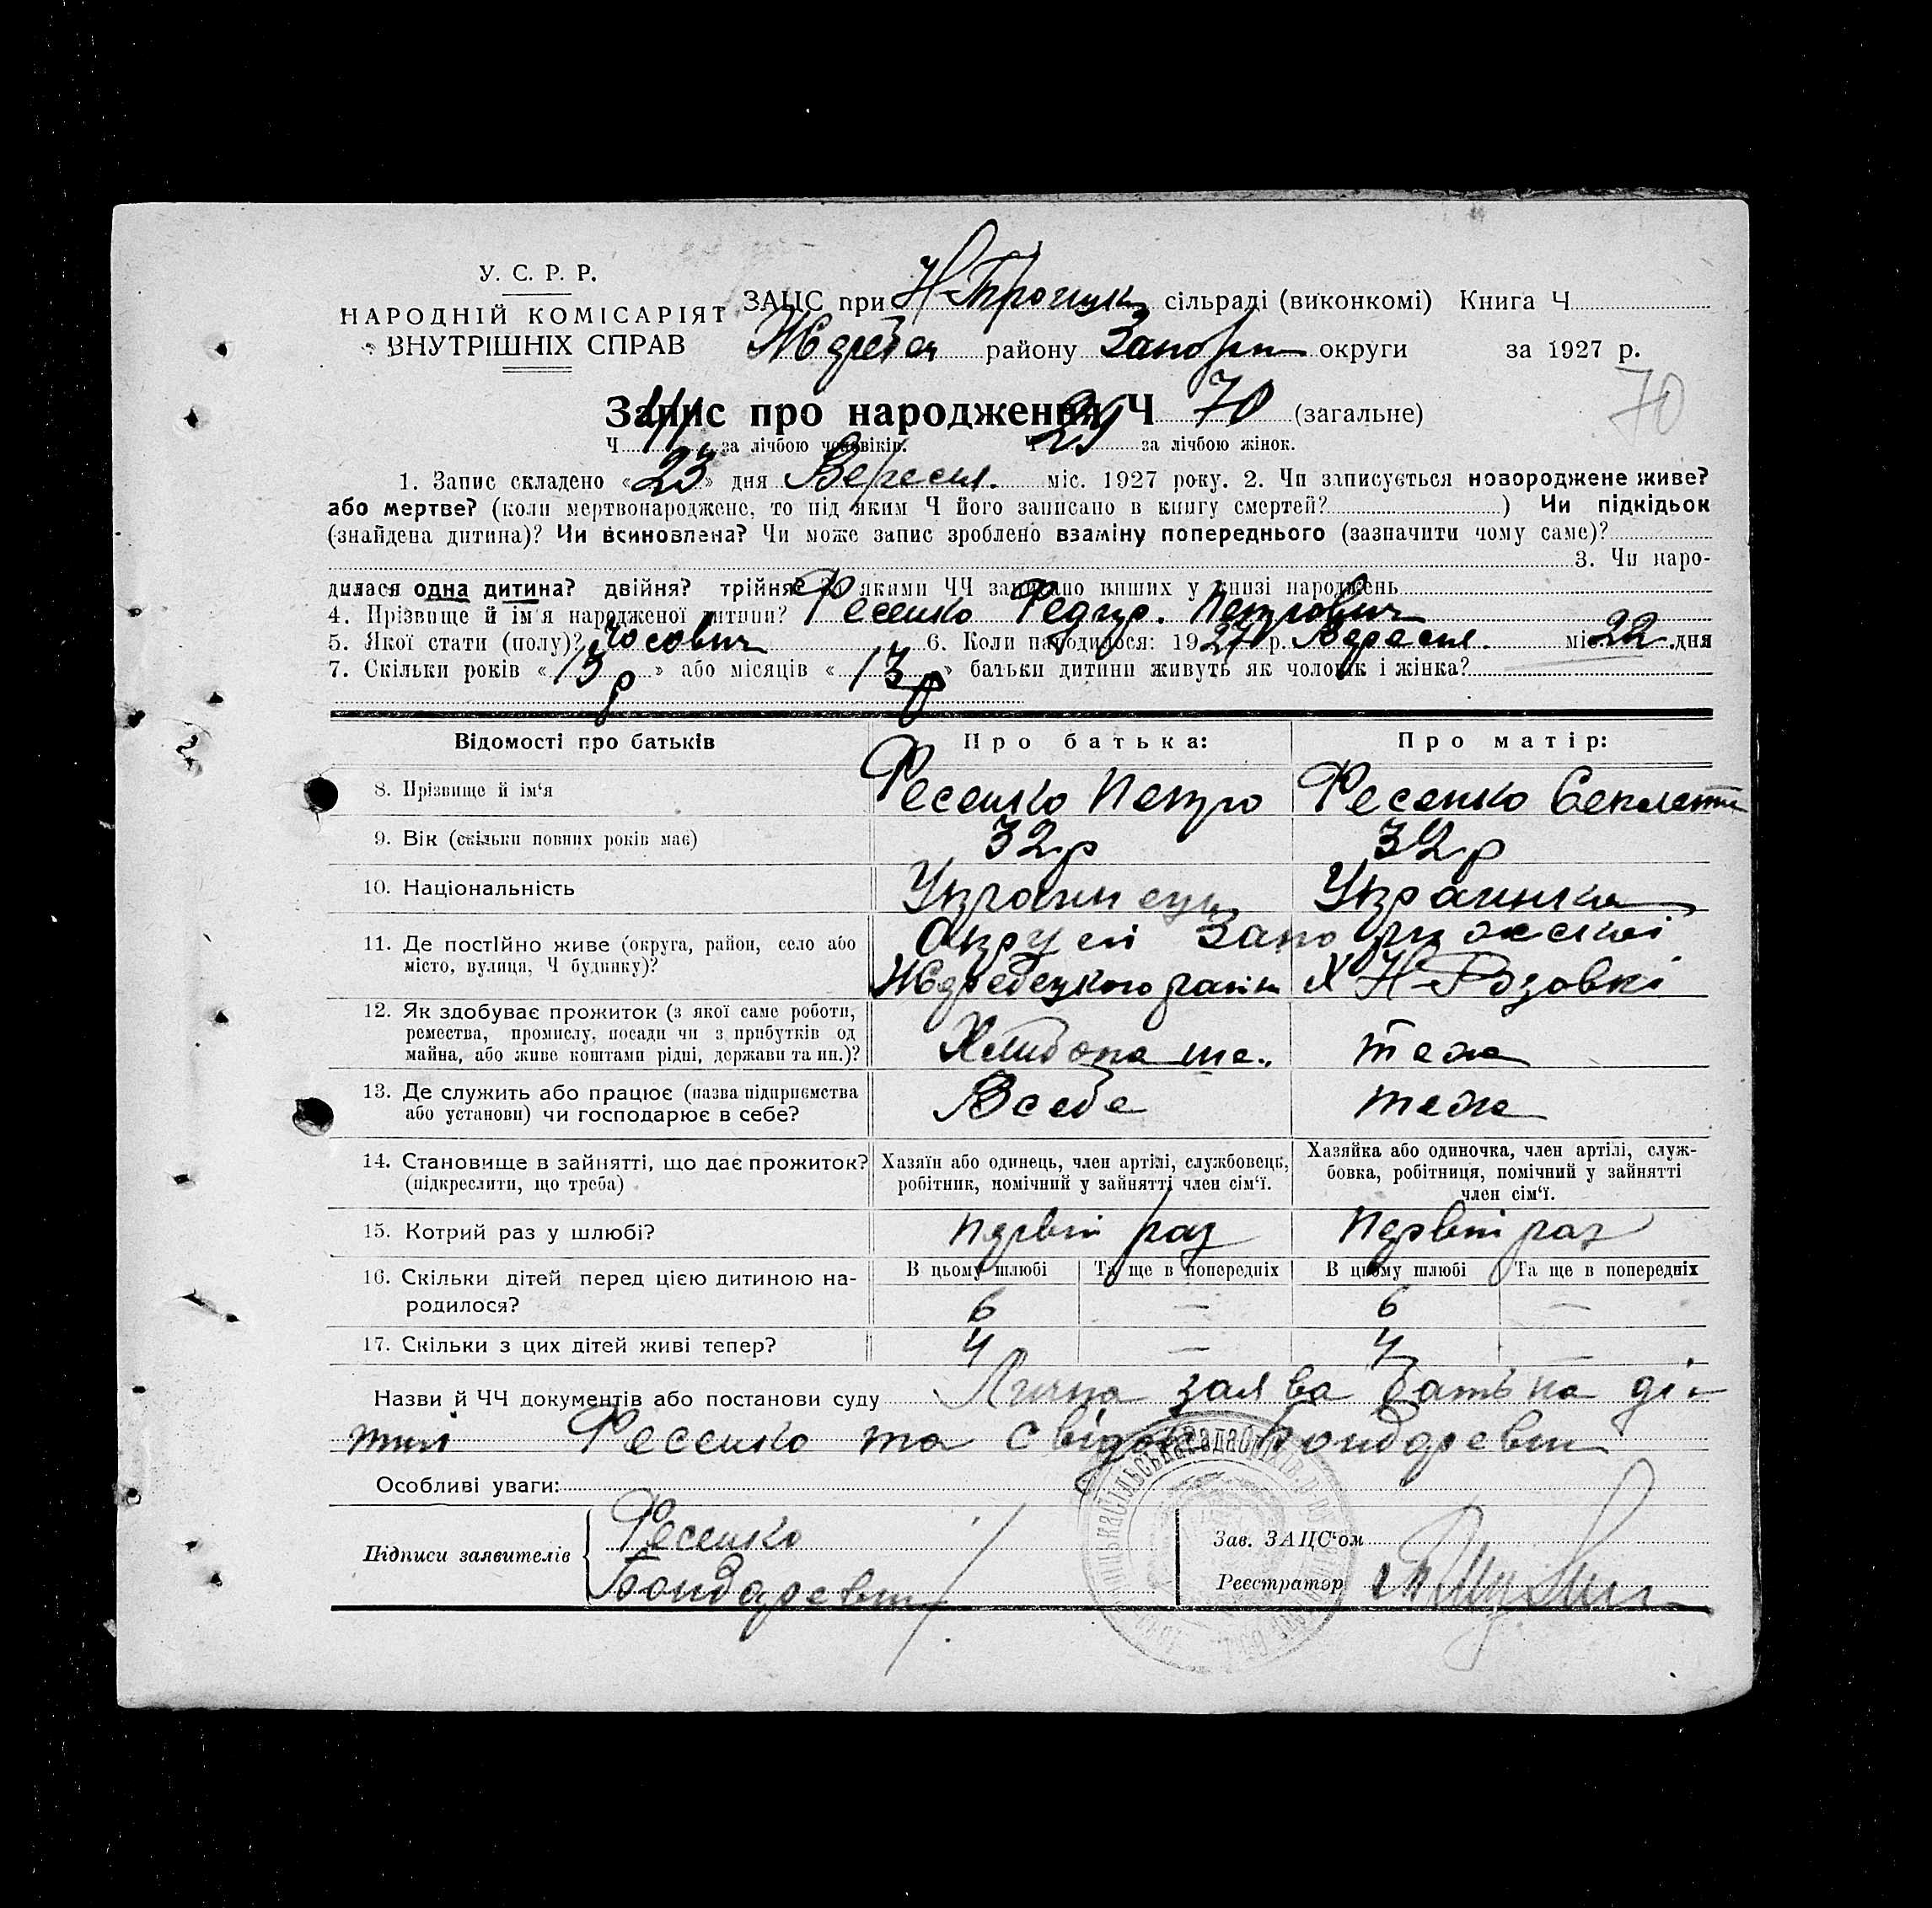 У. С. Р. Р.
НАРОДНІЙ КОМІСАРІЯТ
ВНУТРІШНІХ СПРАВ
ЗАЦС при Н-Троицк сільраді (виконкомі) Книга Ч
району Запоріж округи за 1927 р.
70
Запис про народження Ч 70 (загальне)
Ч 41 за лічбою чоловіків. Ч 29 за лічбою жінок.
1. Запис складено «23» дня Вересня. міс. 1927 року. 2. Чи записується новороджене живе?
або мертве? (коли мертвонароджене, то під яким Ч його записано в книгу смертей? ) Чи підкідьок
(знайдена дитина)? Чи всиновлена? Чи може запис зроблено взаміну попереднього (зазначити чому саме)?
3. Чи наро-
дилася одна дитина? двійня? трійня? якими ЧЧ записано инших у книзі народжень
4. Прізвище й ім'я народженої дитини? Фесенко Федір. Петрович
5. Якої стати (полу)? 6. Коли народилося: 1927 р. Вересня. міс. 22 дня
7. Скільки років «13 р» або місяців «13 р» батьки дитини живуть як чоловік і жінка?
Відомості про батьків Про батька: Про матір:
8. Прізвище й ім'я Фесенко Петро Фесенко
9. Вік (скільки повних років має) 32 р 32 р
10. Національність Украинець Украинка
11. Де постійно живе (округа, район, село або Округи Запорижскої
місто, вулиця, Ч будинку)? Жеребецкого району Х Н-Розовкі
12. Як здобуває прожиток (з якої саме роботи,
ремества, промислу, посади чи з прибутків од
майна, або живе коштами рідні, держави та ин.)? Хлибопаше. теже
13. Де служить або працює (назва підприємства
або установи) чи господарює в себе? В себе теже
14. Становище в зайнятті, що дає прожиток? Хазяїн або одинець, член артілі, службовець, Хазяйка або одиночка, член артілі, служ-
(підкреслити, що треба) робітник, помічний у зайнятті член сім'ї. бовка, робітниця, помічний у зайнятті
член сім'ї.
15. Котрий раз у шлюбі? первий раз первий раз
16. Скільки дітей перед цією дитиною на- В цьому шлюбі Та ще в попередніх В цьому шлюбі Та ще в попередніх
родилося? 6 — 6 —
17. Скільки з цих дітей живі тепер? 4 — 4 —
Назви й ЧЧ документів або постанови суду Лична заява батька ді-
тині Фесенко та свідок Бондаревич
Особливі уваги:
Підписи заявителів Фесенко
Бондаревич
Зав. ЗАЦС'ом
Реєстратор